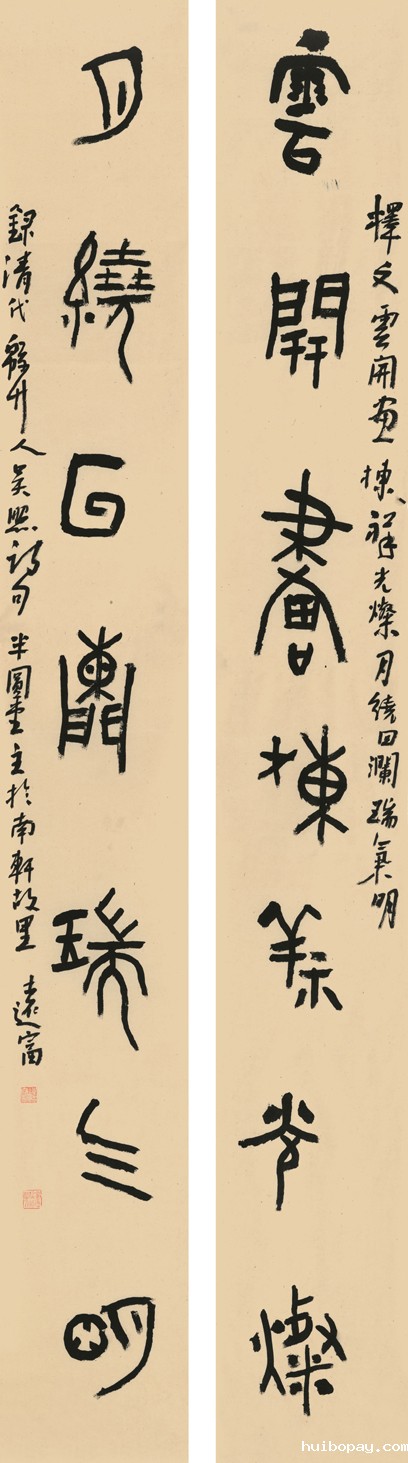 釋文雲開画棟祥光燦月繞回瀾瑞氣明
雲開畫棟祥光燦
月繞回瀾瑞气明
錄清代緜竹人吴照詩句半圖堂主於南軒故里遠富
huibopay.com